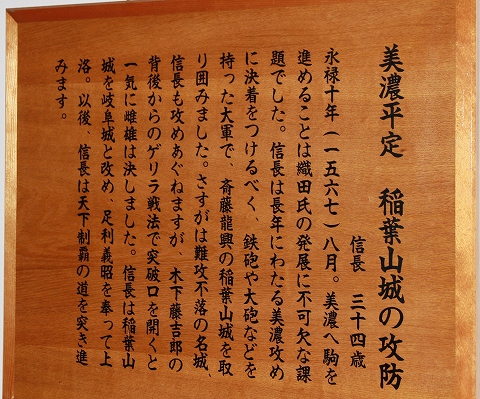 美濃平定　稲葉山城の攻防
信長　三十四歳
永禄十年（一五六七）八月。美濃へ駒を
進めることは織田氏の発展に不可欠な課
題でした。信長は長年にわたる美濃攻め
に決着をつけるべく、鉄砲や大砲などを
持った大軍で、斎藤龍興の稲葉山城を取
り囲みました。さすがは難攻不落の名城、
信長も攻めあぐねますが、木下藤吉郎の
背後からのゲリラ戦法で突破口を開くと
一気に雌雄は決しました。信長は稲葉山
城を岐阜城と改め、足利義昭を奉って上
洛。以後、信長は天下制覇の道を突き進
みます。